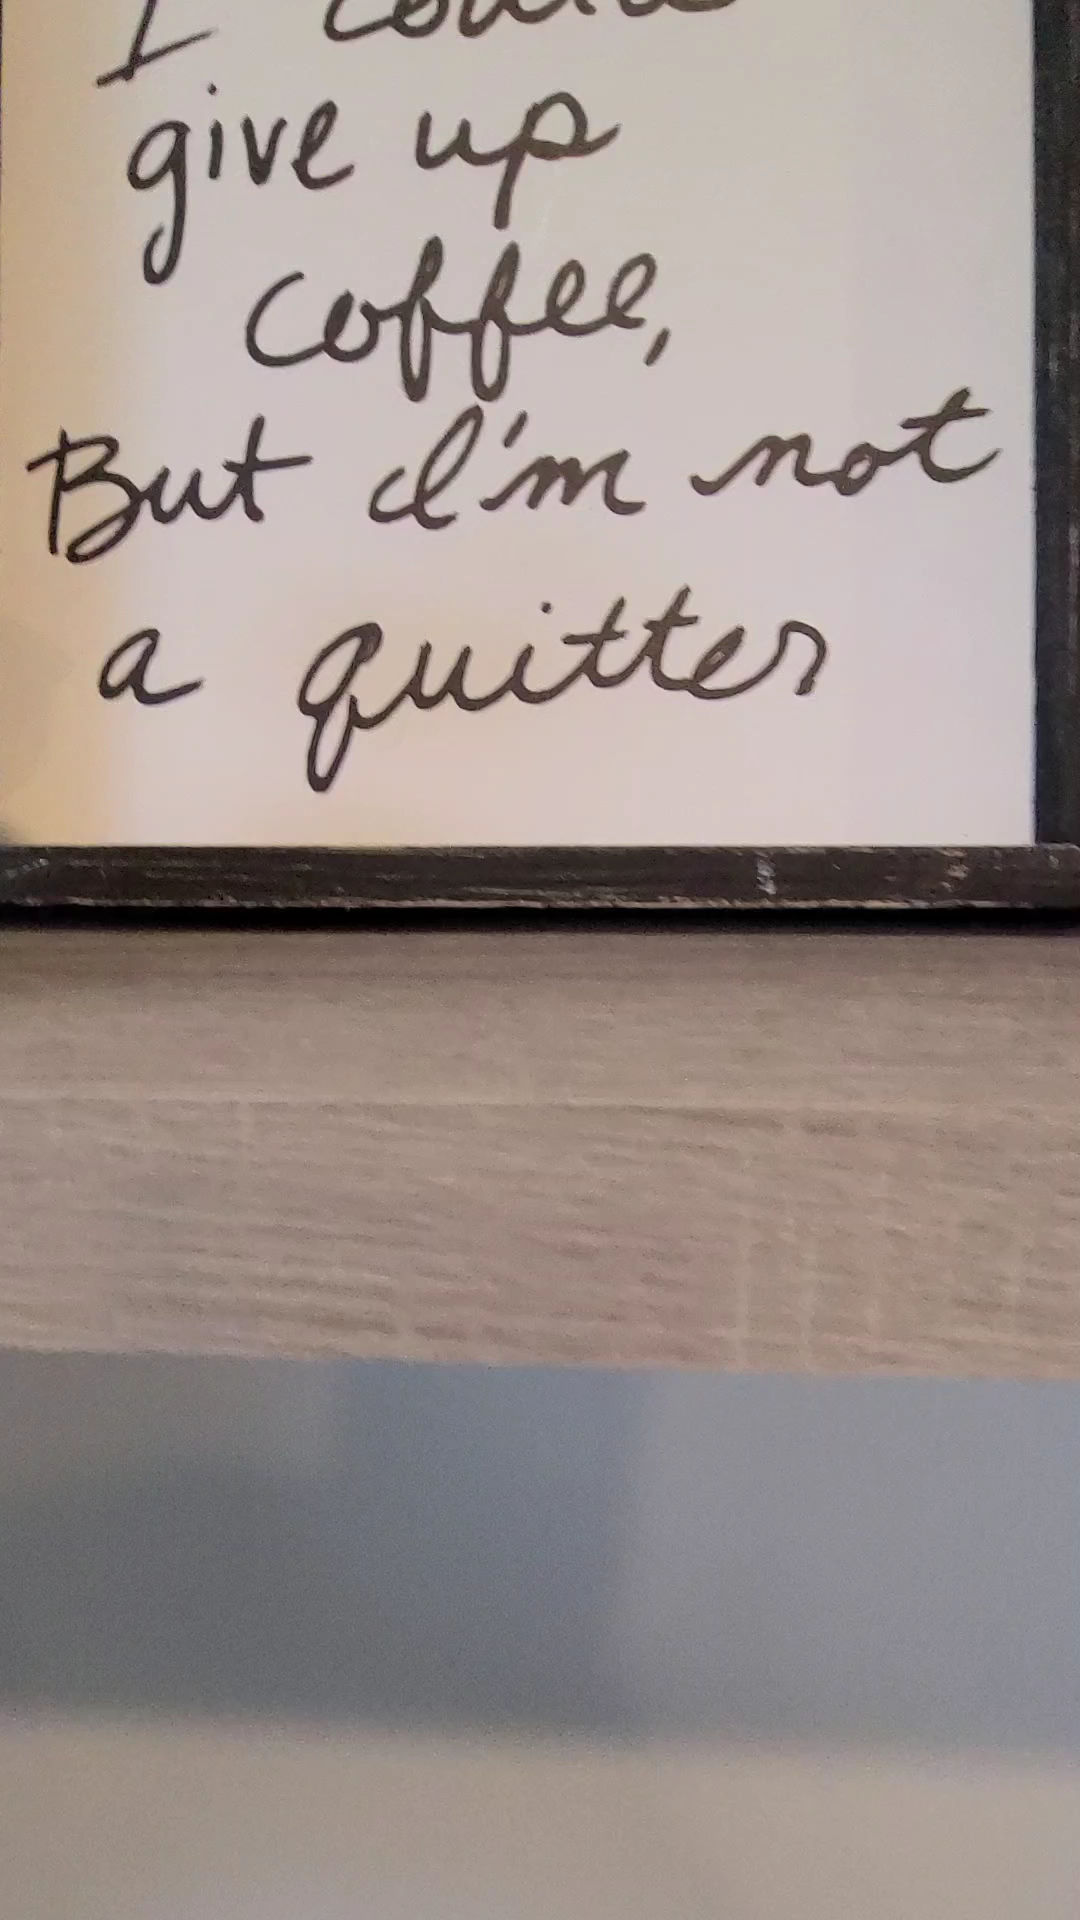 I could
give up
coffee,
But I'm not
a quitter